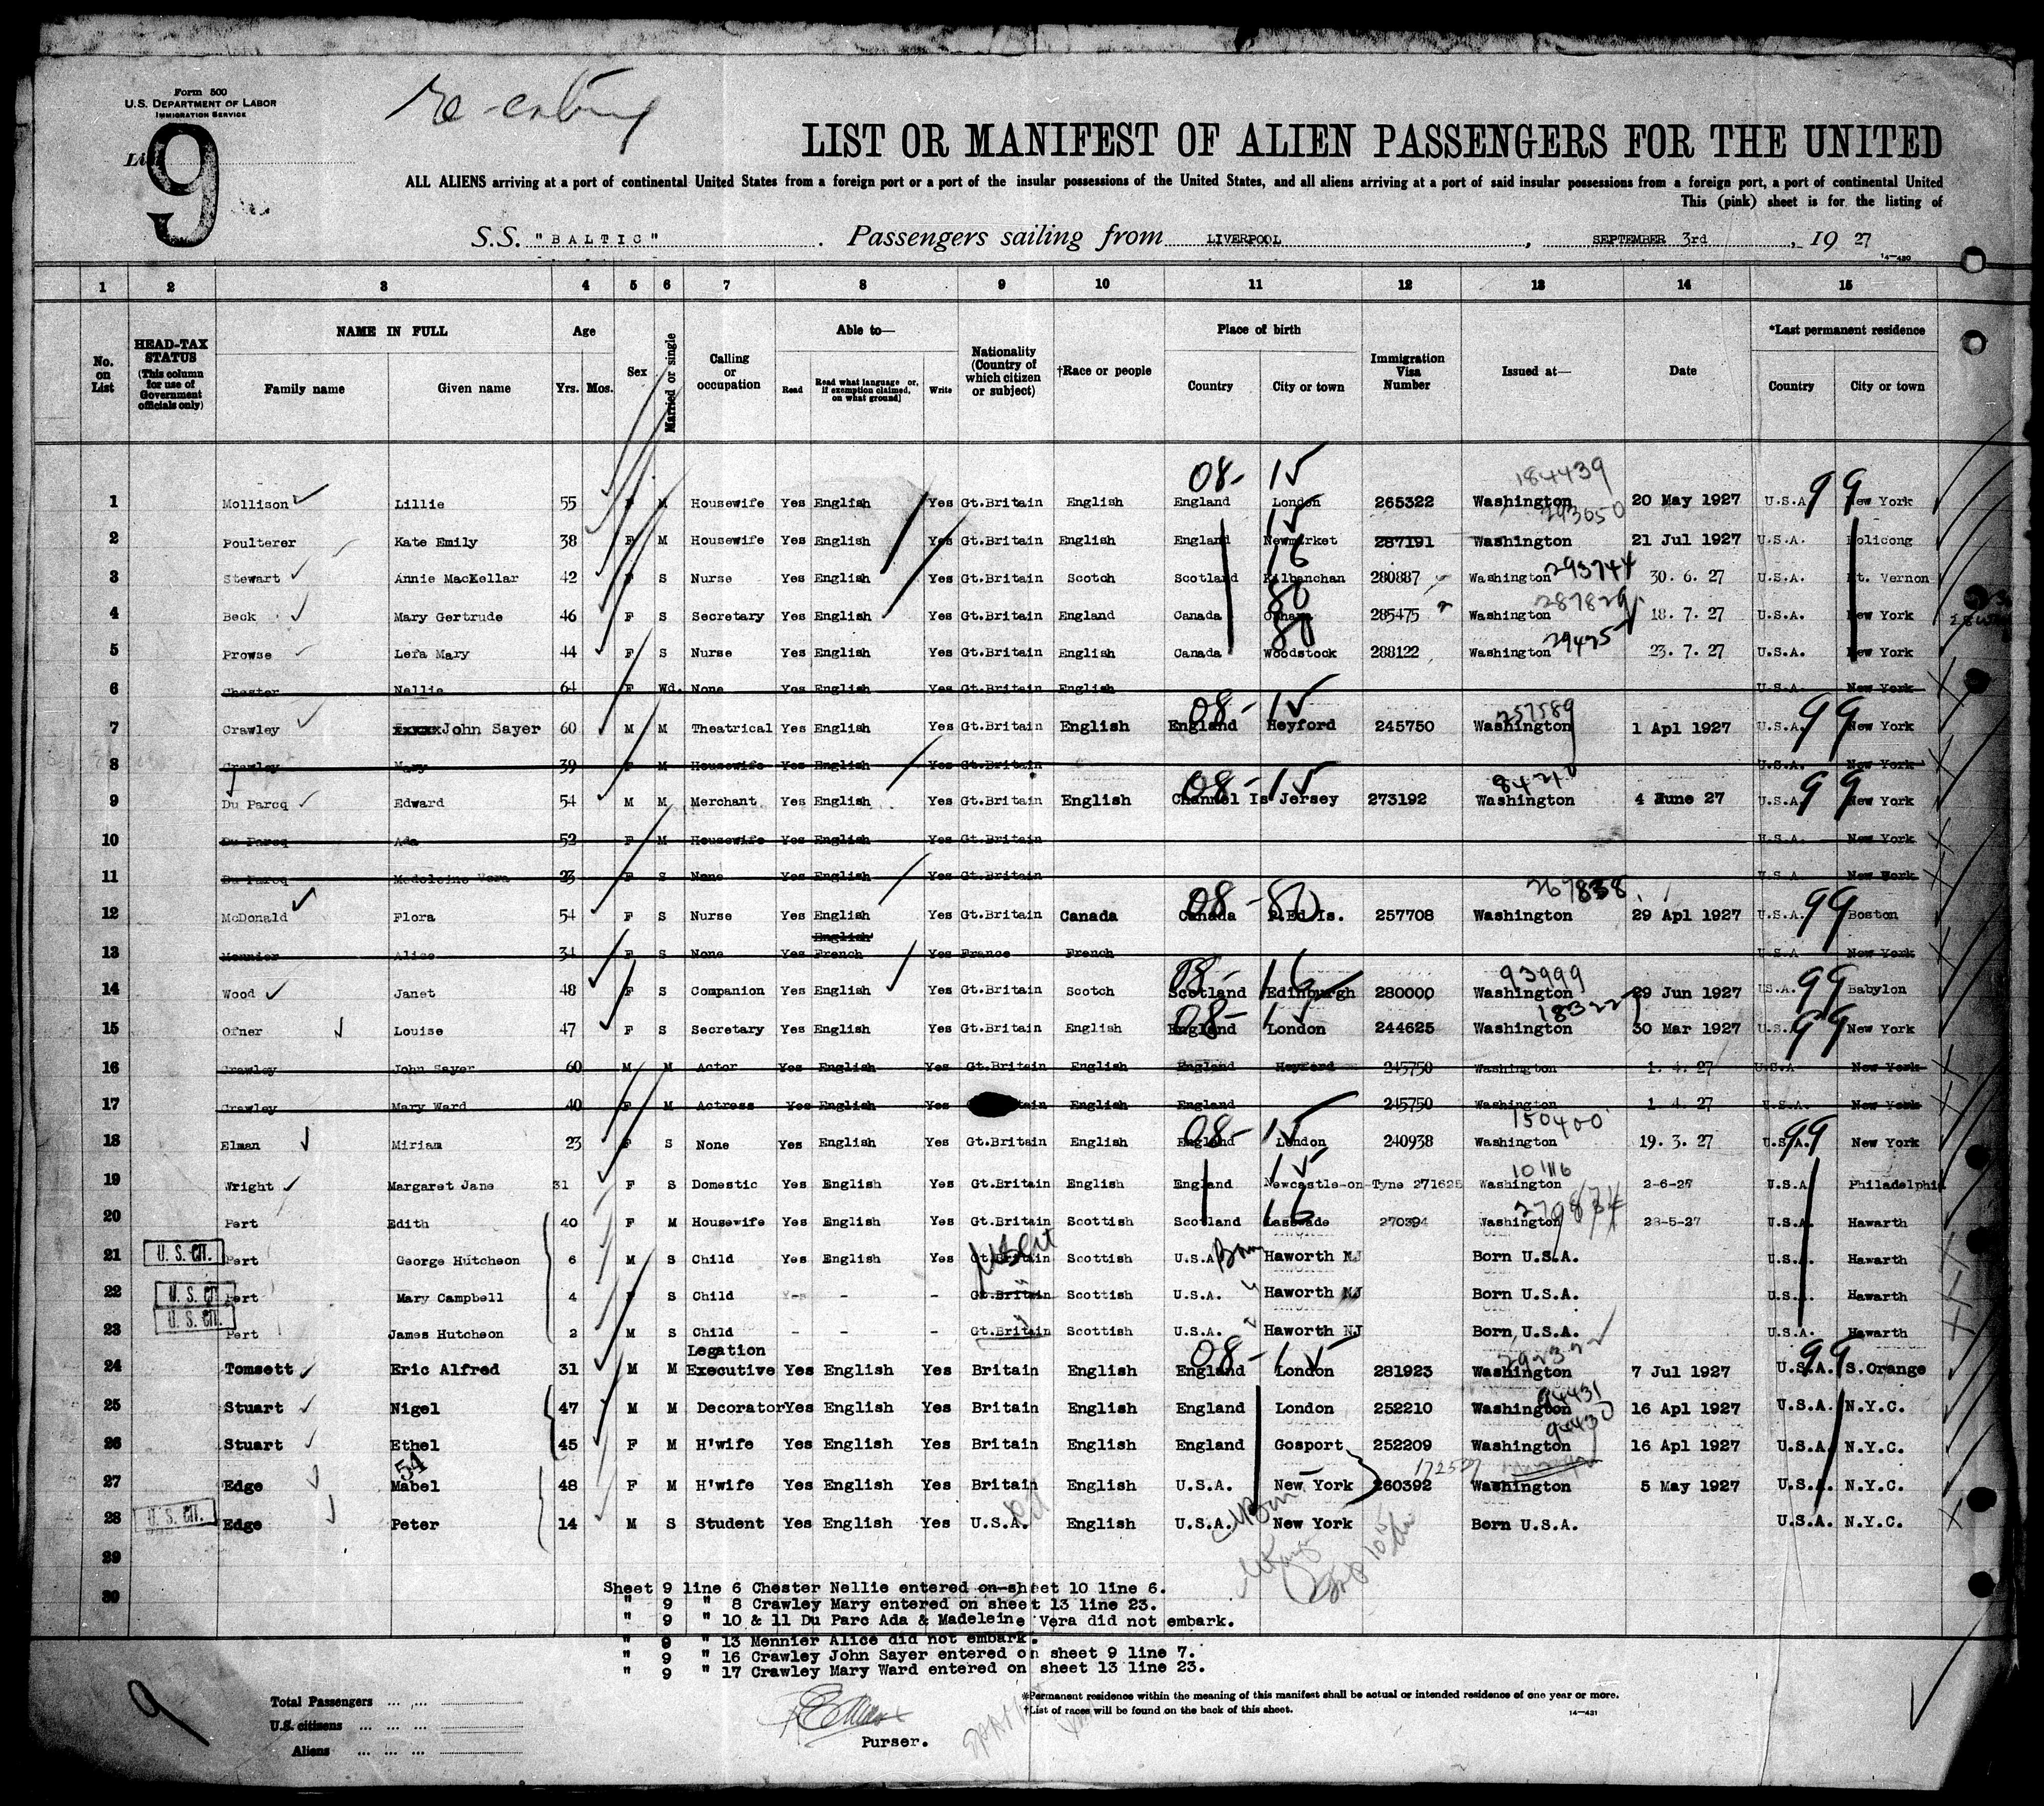 Form 500
U.S. DEPARTMENT OF LABOR
IMMIGRATION SERVICE
List 9
LIST OR MANIFEST OF ALIEN PASSENGERS FOR THE UNITED
ALL ALIENS arriving at a port of continental United States from a foreign port or a port of the insular possessions of the United States, and all aliens arriving at a port of said insular possessions from a foreign port, a port of continental United
This (pink) sheet is for the listing of
S.S. "BALTIC" Passengers sailing from LIVERPOOL, SEPTEMBER 3rd, 19 27
14—430
1 2 3 4 5 6 7 8 9 10 11 12 13 14 15
No. on List HEAD-TAX STATUS (This column for use of Government officials only) NAME IN FULL Family name Given name Age Yrs. Mos. Sex Married or single Calling or occupation Able to— Read Read what language or, if exemption claimed, on what ground) Write Nationality (Country of which citizen or subject) †Race or people Place of birth Country City or town Immigration Visa Number Issued at— Date *Last permanent residence Country City or town
08- 15 184439
1 Mollison Lillie 55 F M Housewife Yes English Yes Gt.Britain English England London 265322 Washington 20 May 1927 U.S.A 99 New York
15 293650
2 Poulterer Kate Emily 38 F M Housewife Yes English Yes Gt.Britain English England Newmarket 287191 Washington 21 Jul 1927 U.S.A. Holicong
16
3 Stewart Annie MacKellar 42 F S Nurse Yes English Yes Gt.Britain Scotch Scotland Kilbanchan 280887 Washington 293744 30. 6. 27 U.S.A. Mt. Vernon
80 287829
4 Beck Mary Gertrude 46 F S Secretary Yes English Yes Gt.Britain England Canada 285475 Washington 18. 7. 27 U.S.A. New York
80
5 Prowse Lefa Mary 44 F S Nurse Yes English Yes Gt.Britain English Canada Woodstock 288122 Washington 23. 7. 27 U.S.A. New York
6 Chester Nellie 64 F Wd. None Yes English Yes Gt.Britain English U.S.A. New York
08- 15 257589
7 Crawley xxxxx John Sayer 60 M M Theatrical Yes English Yes Gt.Britain English England Heyford 245750 Washington 1 Apl 1927 U.S.A. 99 New York
8 Crawley Mary 39 F M Housewife Yes English Yes Gt.Britain U.S.A. New York
08- 15
9 Du Parcq Edward 54 M M Merchant Yes English Yes Gt.Britain English Channel Is Jersey 273192 Washington 4 June 27 U.S.A. 99 New York
10 Du Parcq Ada 52 F M Housewife Yes English Yes Gt.Britain U.S.A. New York
11 Du Parcq Madeleine Vera 23 F S None Yes English Yes Gt.Britain U.S.A. New York
267838
12 McDonald Flora 54 F S Nurse Yes English Yes Gt.Britain Canada 08- 80 Canada P.Ed.Is. 257708 Washington 29 Apl 1927 U.S.A. 99 Boston
English
13 Mennier Alice 34 F S None Yes French Yes France French U.S.A. New York
08- 16 93999
14 Wood Janet 48 F S Companion Yes English Yes Gt.Britain Scotch Scotland Edinburgh 280000 Washington 29 Jun 1927 U.S.A. 99 Babylon
08- 15
15 Ofner Louise 47 F S Secretary Yes English Yes Gt.Britain English England London 244625 Washington 30 Mar 1927 U.S.A. 99 New York
16 Crawley John Sayer 60 M M Actor Yes English Yes Gt.Britain English England Heyford 245750 Washington 1. 4. 27 U.S.A New York
17 Crawley Mary Ward 40 F M Actress Yes English Yes English England 245750 Washington 1. 4. 27 U.S.A. New York
08- 15 150400
18 Elman Miriam 23 F S None Yes English Yes Gt.Britain English England London 240938 Washington 19. 3. 27 U.S.A. 99 New York
15 10116
19 Wright Margaret Jane 31 F S Domestic Yes English Yes Gt.Britain English England Newcastle-on-Tyne 271625 Washington 2-6-27 U.S.A Philadelphia
16
20 Pert Edith 40 F M Housewife Yes English Yes Gt.Britain Scottish Scotland Lasswade 270394 Washington 23-5-27 U.S.A Hawarth
21 U. S. CIT. Pert George Hutcheon 6 M S Child Yes English Yes Gt.Britain Scottish U.S.A Born Haworth NJ Born U.S.A. U.S.A. Hawarth
22 U. S. CIT. Pert Mary Campbell 4 F S Child Yes - - Gt.Britain Scottish U.S.A. " Haworth NJ Born U.S.A. U.S.A. Hawarth
23 U. S. CIT. Pert James Hutcheon 2 M S Child - - - Gt.Britain Scottish U.S.A. " Haworth NJ Born U.S.A. U.S.A. Hawarth
Legation 08- 15
24 Tomsett Eric Alfred 31 M M Executive Yes English Yes Britain English England London 281923 Washington 7 Jul 1927 U.S.A. 99 S.Orange
94431
25 Stuart Nigel 47 M M Decorator Yes English Yes Britain English England London 252210 Washington 16 Apl 1927 U.S.A. N.Y.C.
94430
26 Stuart Ethel 45 F M H'wife Yes English Yes Britain English England Gosport 252209 Washington 16 Apl 1927 U.S.A. N.Y.C.
54
27 Edge Mabel 48 F M H'wife Yes English Yes Britain English U.S.A. New York 260392 Washington 5 May 1927 U.S.A. N.Y.C.
28 U. S. CIT. Edge Peter 14 M S Student Yes English Yes U.S.A. English U.S.A. New York Born U.S.A. U.S.A. N.Y.C.
29
30
Sheet 9 line 6 Chester Nellie entered on sheet 10 line 6.
" 9 " 8 Crawley Mary entered on sheet 13 line 23.
" 9 " 10 & 11 Du Parc Ada & Madeleine Vera did not embark.
" 9 " 13 Mennier Alice did not embark.
" 9 " 16 Crawley John Sayer entered on sheet 9 line 7.
" 9 " 17 Crawley Mary Ward entered on sheet 13 line 23.
9
Total Passengers ... ...
U.S. citizens ... ... ...
Aliens ... ... ...
Purser.
*Permanent residence within the meaning of this manifest shall be actual or intended residence of one year or more.
†List of races will be found on the back of this sheet.
14—431